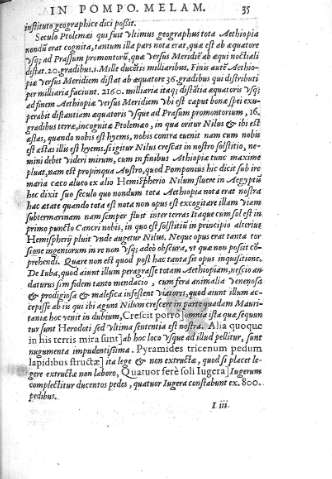 IN POMPO. MELAM. 35
instituto geographice dici possit.
Seculo Ptolemæi qui fuit vltimus geographus tota Aethiopia
nondũ erat cognita, tantum illa pars nota erat, quæ est ab æquatore
vsq; ad Prasum promontoriũ, quæ versus Meridiẽ ab æqui noctiali
distat .20. gradibus .1. Mille ducẽtis milliaribus. Finis autẽ Aethio-
piæ versus Meridiem distat ab æquatore 36. gradibus qui distributi
per milliaria faciunt. 2160. milliaria itaq; distãtia æquatoris vsq;
ad finem Aethiopiæ versus Meridiem vbi est caput bonæ spei exu-
perabit distantiam æquatoris vsque ad Prasum promontorium, 16.
gradibus terræ, incognitæ Ptolemæo, in qua oratur Nilus & ibi est
æstas, quando nobis est hyems, nobis contra euenit nam cum nobis
est æstas illis est hyems. si igitur Nilus crescat in nostro solstitio, ne-
mini debet videri mirum, cum in finibus Aethiopiæ tunc maxime
pluat, nam est propinqua Austro, quod Pomponius hic dicit sub ire
maria cæco alueo ex alio Hemispherio Nilum fluere in Aegyptũ
hec dixit suo seculo quo nondum tota Aethiopia nota erat nostra
hac ætate quando tota est nota non opus est excogitare illam viam
subtermarinam nam semper fluit inter terras Itaque cum sol est in
primo puncto Cancri nobis, in quo est solstitiũ in principio alterius
Hemispherij pluit vnde augetur Nilus. Neque opus erat tanta tor
sione ingeniorum in re non vsq; adeo obscura, vt quæ non possit cõ-
prehendi. Quare non est quod post hac tanta sit opus inquisitione.
De Iuba, quod aiunt illum peragrasse totam Aethiopiam, nescio an
daturus sim fidem tanto mendacio, cum fera animalia venenosa
& prodigiosa & malefica infestent viatores, quod aiunt illum ac-
cepisse ab iis qui ibi agunt Nilum crescere in parte quadam Mauri-
taniæ hoc venit in dubium, Crescit porro] omnia ista quæ sequun
tur sunt Herodoti sed vltima sententia est nostra. Alia quoque
in his terris mira sunt] ab hoc loco vsque ad illud pellitur, sunt
nugumenta impudentissima. Pyramides tricenum pedum
lapidibus structæ] ita lege & non extructæ, quod si placet le-
gere extructæ non laboro, Quatuor ferè soli Iugera] Iugerum
complectitur ducentos pedes, quatuor Iugera constabunt ex. 800.
pedibus.
I iii.